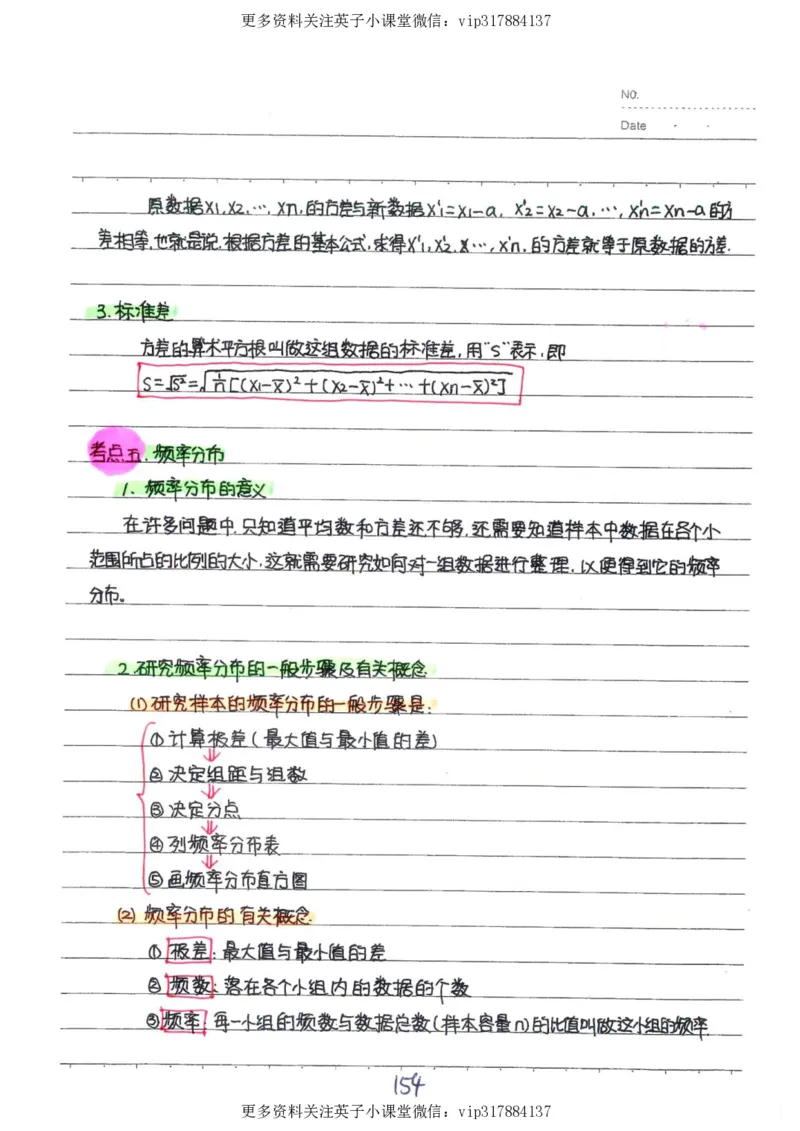 更多资料关注英子小课堂微信：vip317884137
NO.
Date
原数据x1,x2,…,xn,的方差与新数据x'1=x1-a, x'2=x2-a,…,x'n=xn-a的方
差相等,也就是说,根据方差的基本公式,求得x'1,x'2,…,x'n,的方差就等于原数据的方差.
3.标准差
方差的算术平方根叫做这组数据的标准差,用"S"表示,即
S=√S²=√1/n[(x1-x̄)²+(x2-x̄)²+…+(xn-x̄)²]
考点五.频率分布
1.频率分布的意义
在许多问题中,只知道平均数和方差还不够,还需要知道样本中数据在各个小
范围所占的比例的大小,这就需要研究如何对一组数据进行整理,以便得到它的频率
分布。
2.研究频率分布的一般步骤及有关概念
(1)研究样本的频率分布的一般步骤是:
①计算极差(最大值与最小值的差)
②决定组距与组数
③决定分点
④列频率分布表
⑤画频率分布直方图
(2)频率分布的有关概念
①极差:最大值与最小值的差
②频数:落在各个小组内的数据的个数
③频率:每一小组的频数与数据总数(样本容量n)的比值叫做这小组的频率.
154
更多资料关注英子小课堂微信：vip317884137